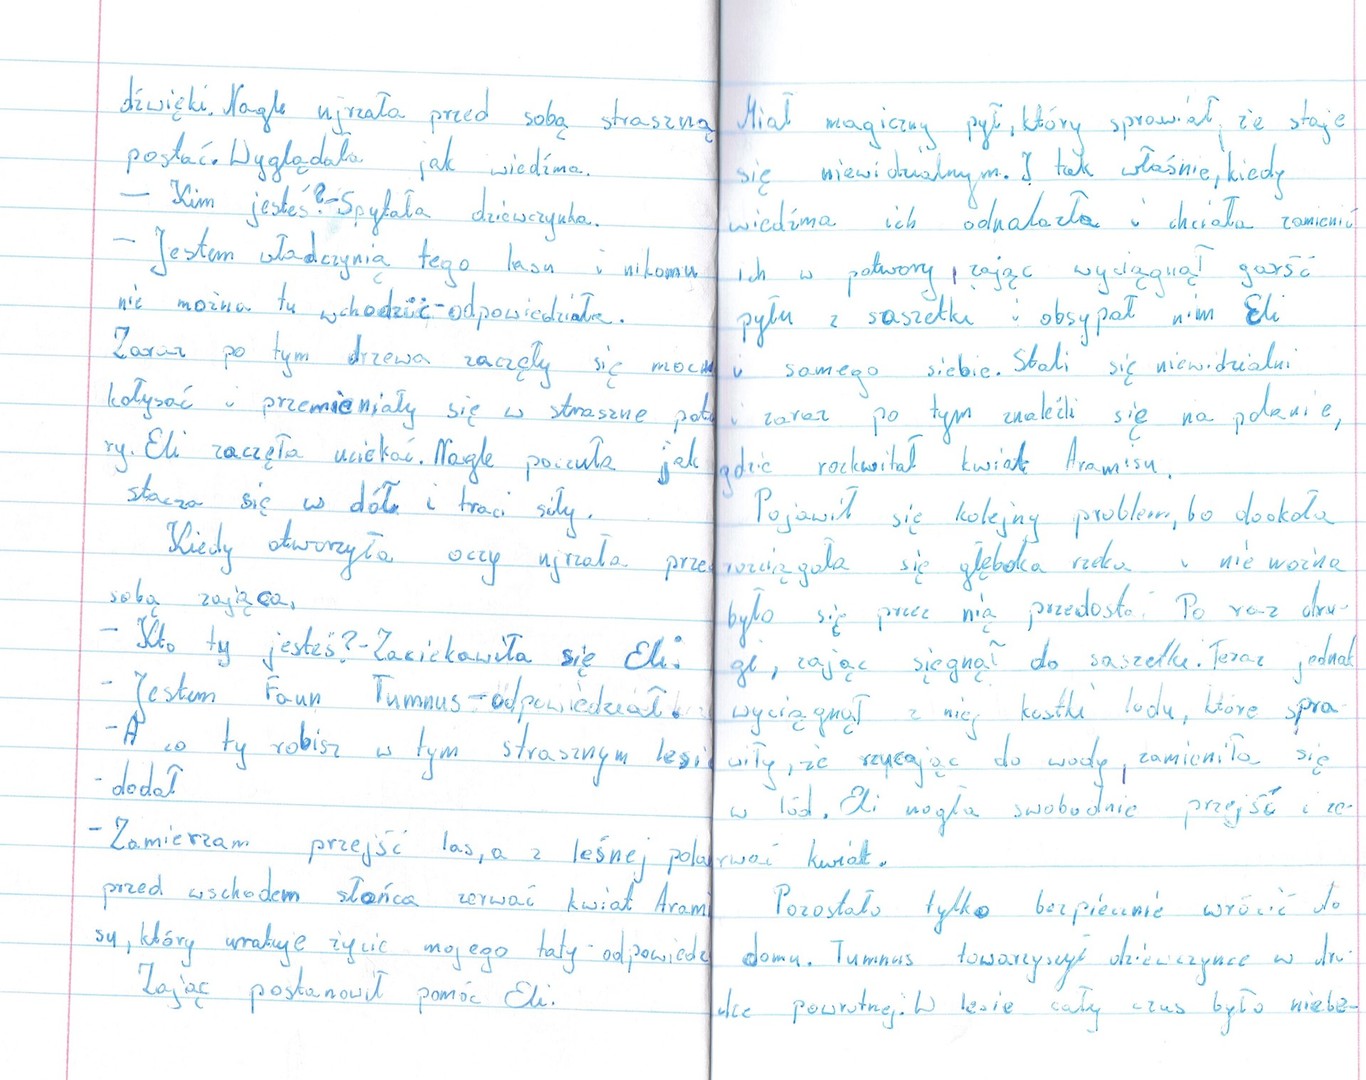 dźwięki. Nagle ujrzała przed sobą straszną
postać. Wyglądała jak wiedźma.
– Kim jesteś? – Spytała dziewczynka.
– Jestem władczynią tego lasu i nikomu
nie można tu wchodzić – odpowiedziała.
Zaraz po tym drzewa zaczęły się mocn
kołysać i przemieniały się w straszne potw
ry. Eli zaczęła uciekać. Nagle poczuła jak
stacza się w dół i traci siły.
Kiedy otworzyła oczy ujrzała przed
sobą zająca.
– Kto ty jesteś? – Zaciekawiła się Eli.
– Jestem Faun Tumnus – odpowiedział.
– A co ty robisz w tym strasznym lesie
– dodał
– Zamierzam przejść las, a z leśnej pola
przed wschodem słońca zerwać kwiat Arami
su, który uratuje życie mojego taty – odpowiedz
Zając postanowił pomóc Eli.
Miał magiczny pył, który sprawiał, że staje
się niewidualnym. I tak właśnie, kiedy
wiedźma ich odnalazła i chciała zamienić
ich w potwory, zając wyciągnął garść
pyłu z saszetki i obsypał nim Eli
i samego siebie. Stali się niewidzialni
i zaraz po tym znaleźli się na polanie,
gdzie rozkwitał kwiat Aramisu.
Pojawił się kolejny problem, bo dookoła
rozciągała się głęboka rzeka i nie można
było się przez nią przedostać. Po raz dru-
gi, zając sięgnął do saszetki. Teraz jednak
wyciągnął z niej kostki lodu, które spra-
wiły, że rzucając do wody, zamieniła się
w lód. Eli mogła swobodnie przejść i ze-
rwać kwiat.
Pozostało tylko bezpiecznie wrócić do
domu. Tumnus towarzyszył dziewczynce w dro-
dze powrotnej. W lesie cały czas było niebe-